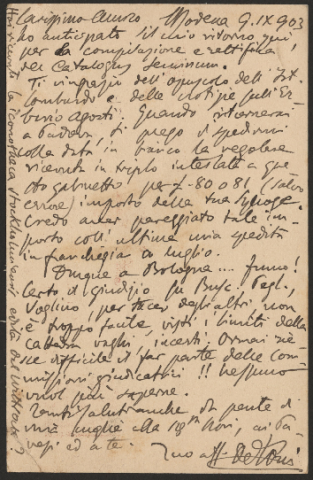 Carissimo amico Modena 9. IX 903
ho anticipato il mio ritorno qui
per la compilazione e rettifica
del Catalogus Seminum.
Ti ringrazio dell'opuscolo dell' Ist.
lombardo e delle notizie sull'Er-
bario Agosti. Quando ritornerai
a Padova ti prego di spedirmi
colla data in bianco la regolare
ricevuta in triplo intestata a que
sto gabinetto per £ 80 o 81 (salvo
errore) importo della tua Sylloge.
Credo aver pareggiato tale im-
porto coll' ultimo mia spedita
in franchigia in luglio.
Dunque a Bologna .... fumo!
Certo il giudizio su Busc. Pegl.
Voglino, per tacer degli altri non
è troppo facile, visti i limiti della
cattedra vaghi, incerti. Ormai rie-
sce difficile il far parte delle com
missioni giudicatrici !! nessuno
vuol più saperne.
Tanti saluti anche da parte di
mia moglie alla Sig.ra
ed a te.
Tuo aff. De Toni
Hai ricevuto la iconoteca